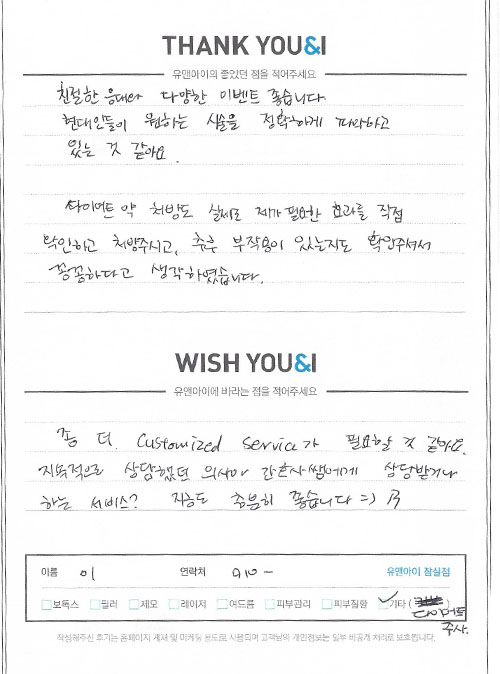 THANK YOU&I
유앤아이의 좋았던 점을 적어주세요
친절한 응대와 다양한 이벤트 좋습니다.
현대인들이 원하는 시술을 정확하게 파악하고
있는 것 같아요.
다이어트 약 처방도 실제로 제가 필요한 효과를 직접
확인하고 처방주시고, 추후 부작용이 있는지도 확인주셔서
꼼꼼하다고 생각하였습니다.
WISH YOU&I
유앤아이에 바라는 점을 적어주세요
좀 더 customized service가 필요할 것 같아요.
지속적으로 상담했던 의사나 간호사쌤에게 상담받거나
하는 서비스? 지금도 충분히 좋습니다 =)
이름 이 연락처 010 - 유앤아이 잠실점
보톡스 필러 제모 레이저 여드름 피부관리 피부질환 기타 ( 다이어트
주사.
작성해주신 후기는 홈페이지 게재 및 마케팅 용도로 사용되며 고객님의 개인정보는 일부 비공개 처리로 보호됩니다.